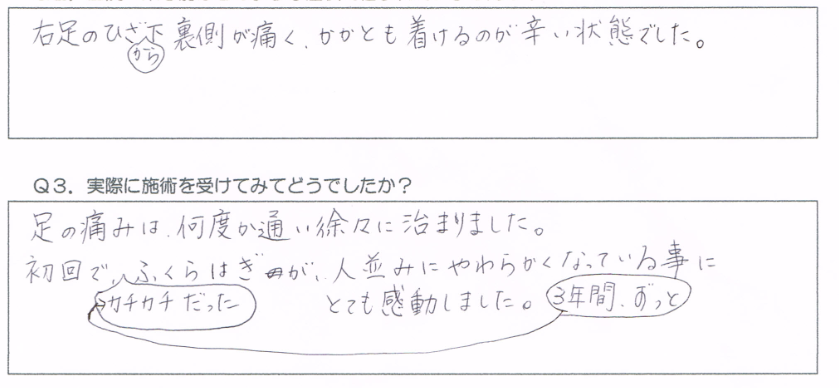 右足のひざ下裏側が痛く、かかとも着けるのが辛い状態でした。
から
Q3．実際に施術を受けてみてどうでしたか？
足の痛みは、何度か通い徐々に治まりました。
初回で、ふくらはぎが、人並みにやわらかくなっている事に
カチカチだった とても感動しました。3年間、ずっと